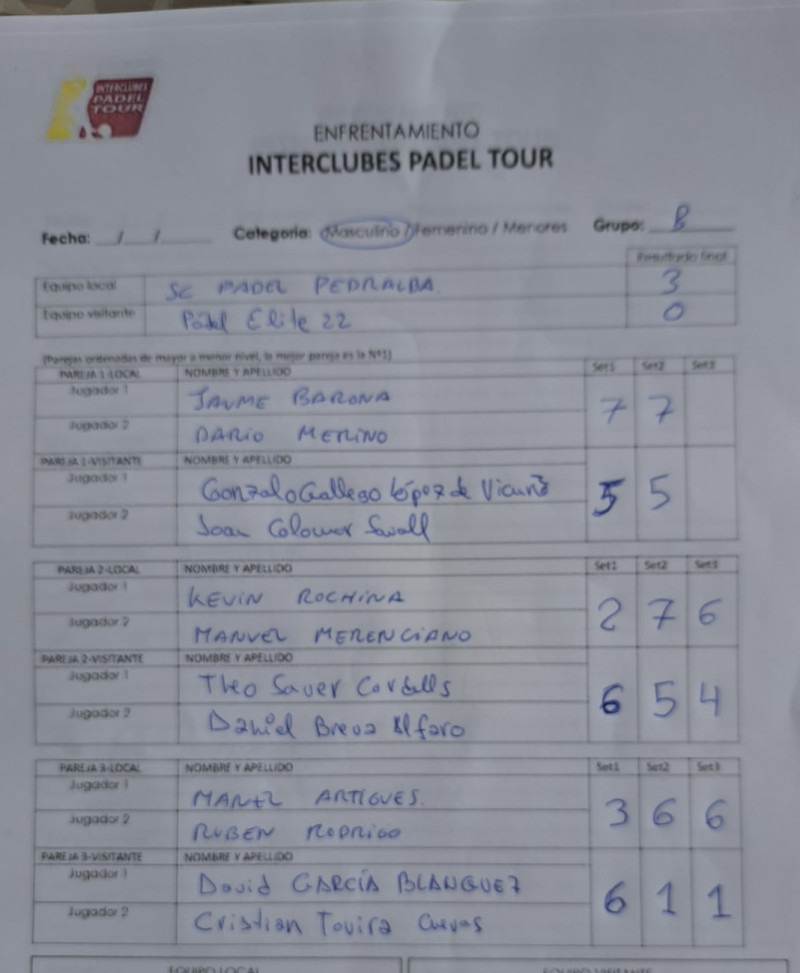 INTERCLUBES
PADEL
TOUR
ENFRENTAMIENTO
INTERCLUBES PADEL TOUR
Fecha: __/__/____ Categoria: (Masculino / Femenino / Menores Grupo: B
Resultado final
Equipo local SC PADEL PEDRALBA 3
Equipo visitante Padel Elite 22 0
(Parejas ordenadas de mayor a menor nivel, la mejor pareja es la Nº1)
PAREJA 1-LOCAL NOMBRE Y APELLIDO Set1 Set2 Set3
Jugador 1 JAUME BARONA
7 7
Jugador 2 DARIO MERINO
PAREJA 1-VISITANTE NOMBRE Y APELLIDO
Jugador 1 Gonzalo Gallego López de Vicuña
5 5
Jugador 2 Joan Colomer Savall
PAREJA 2-LOCAL NOMBRE Y APELLIDO Set1 Set2 Set3
Jugador 1 KEVIN ROCHINA
2 7 6
Jugador 2 MANUEL MERENCIANO
PAREJA 2-VISITANTE NOMBRE Y APELLIDO
Jugador 1 Theo Sauer
6 5 4
Jugador 2 Daniel Breva Alfaro
PAREJA 3-LOCAL NOMBRE Y APELLIDO Set1 Set2 Set3
Jugador 1 MANEL ARTIGUES.
3 6 6
Jugador 2 RUBEN RODRIGO
PAREJA 3-VISITANTE NOMBRE Y APELLIDO
Jugador 1 David GARCÍA BLANQUEZ
6 1 1
Jugador 2 Cristian Tovira Cuevas
EQUIPO LOCAL EQUIPO VISITANTE